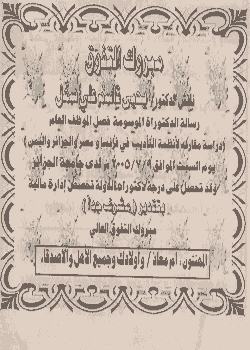 مبروك التفوق
رسالة الدكتوراة الموسومة فصل الموظف العام
(دراسة مقارنة لأنظمة التأديب في فرنسا و مصر والجزائر واليمن)
يوم السبت الموافق ٢٠٠٥/٧/٩م لدى جامعة الجزائر
وقد تحصل على درجة دكتوراه الدولة تخصص إدارة مالية
بتقدير (مشرف جدا)
مبروك التفوق العالي
المهنئون: أم معاذ / وأولادك وجميع الأهل والأصدقاء